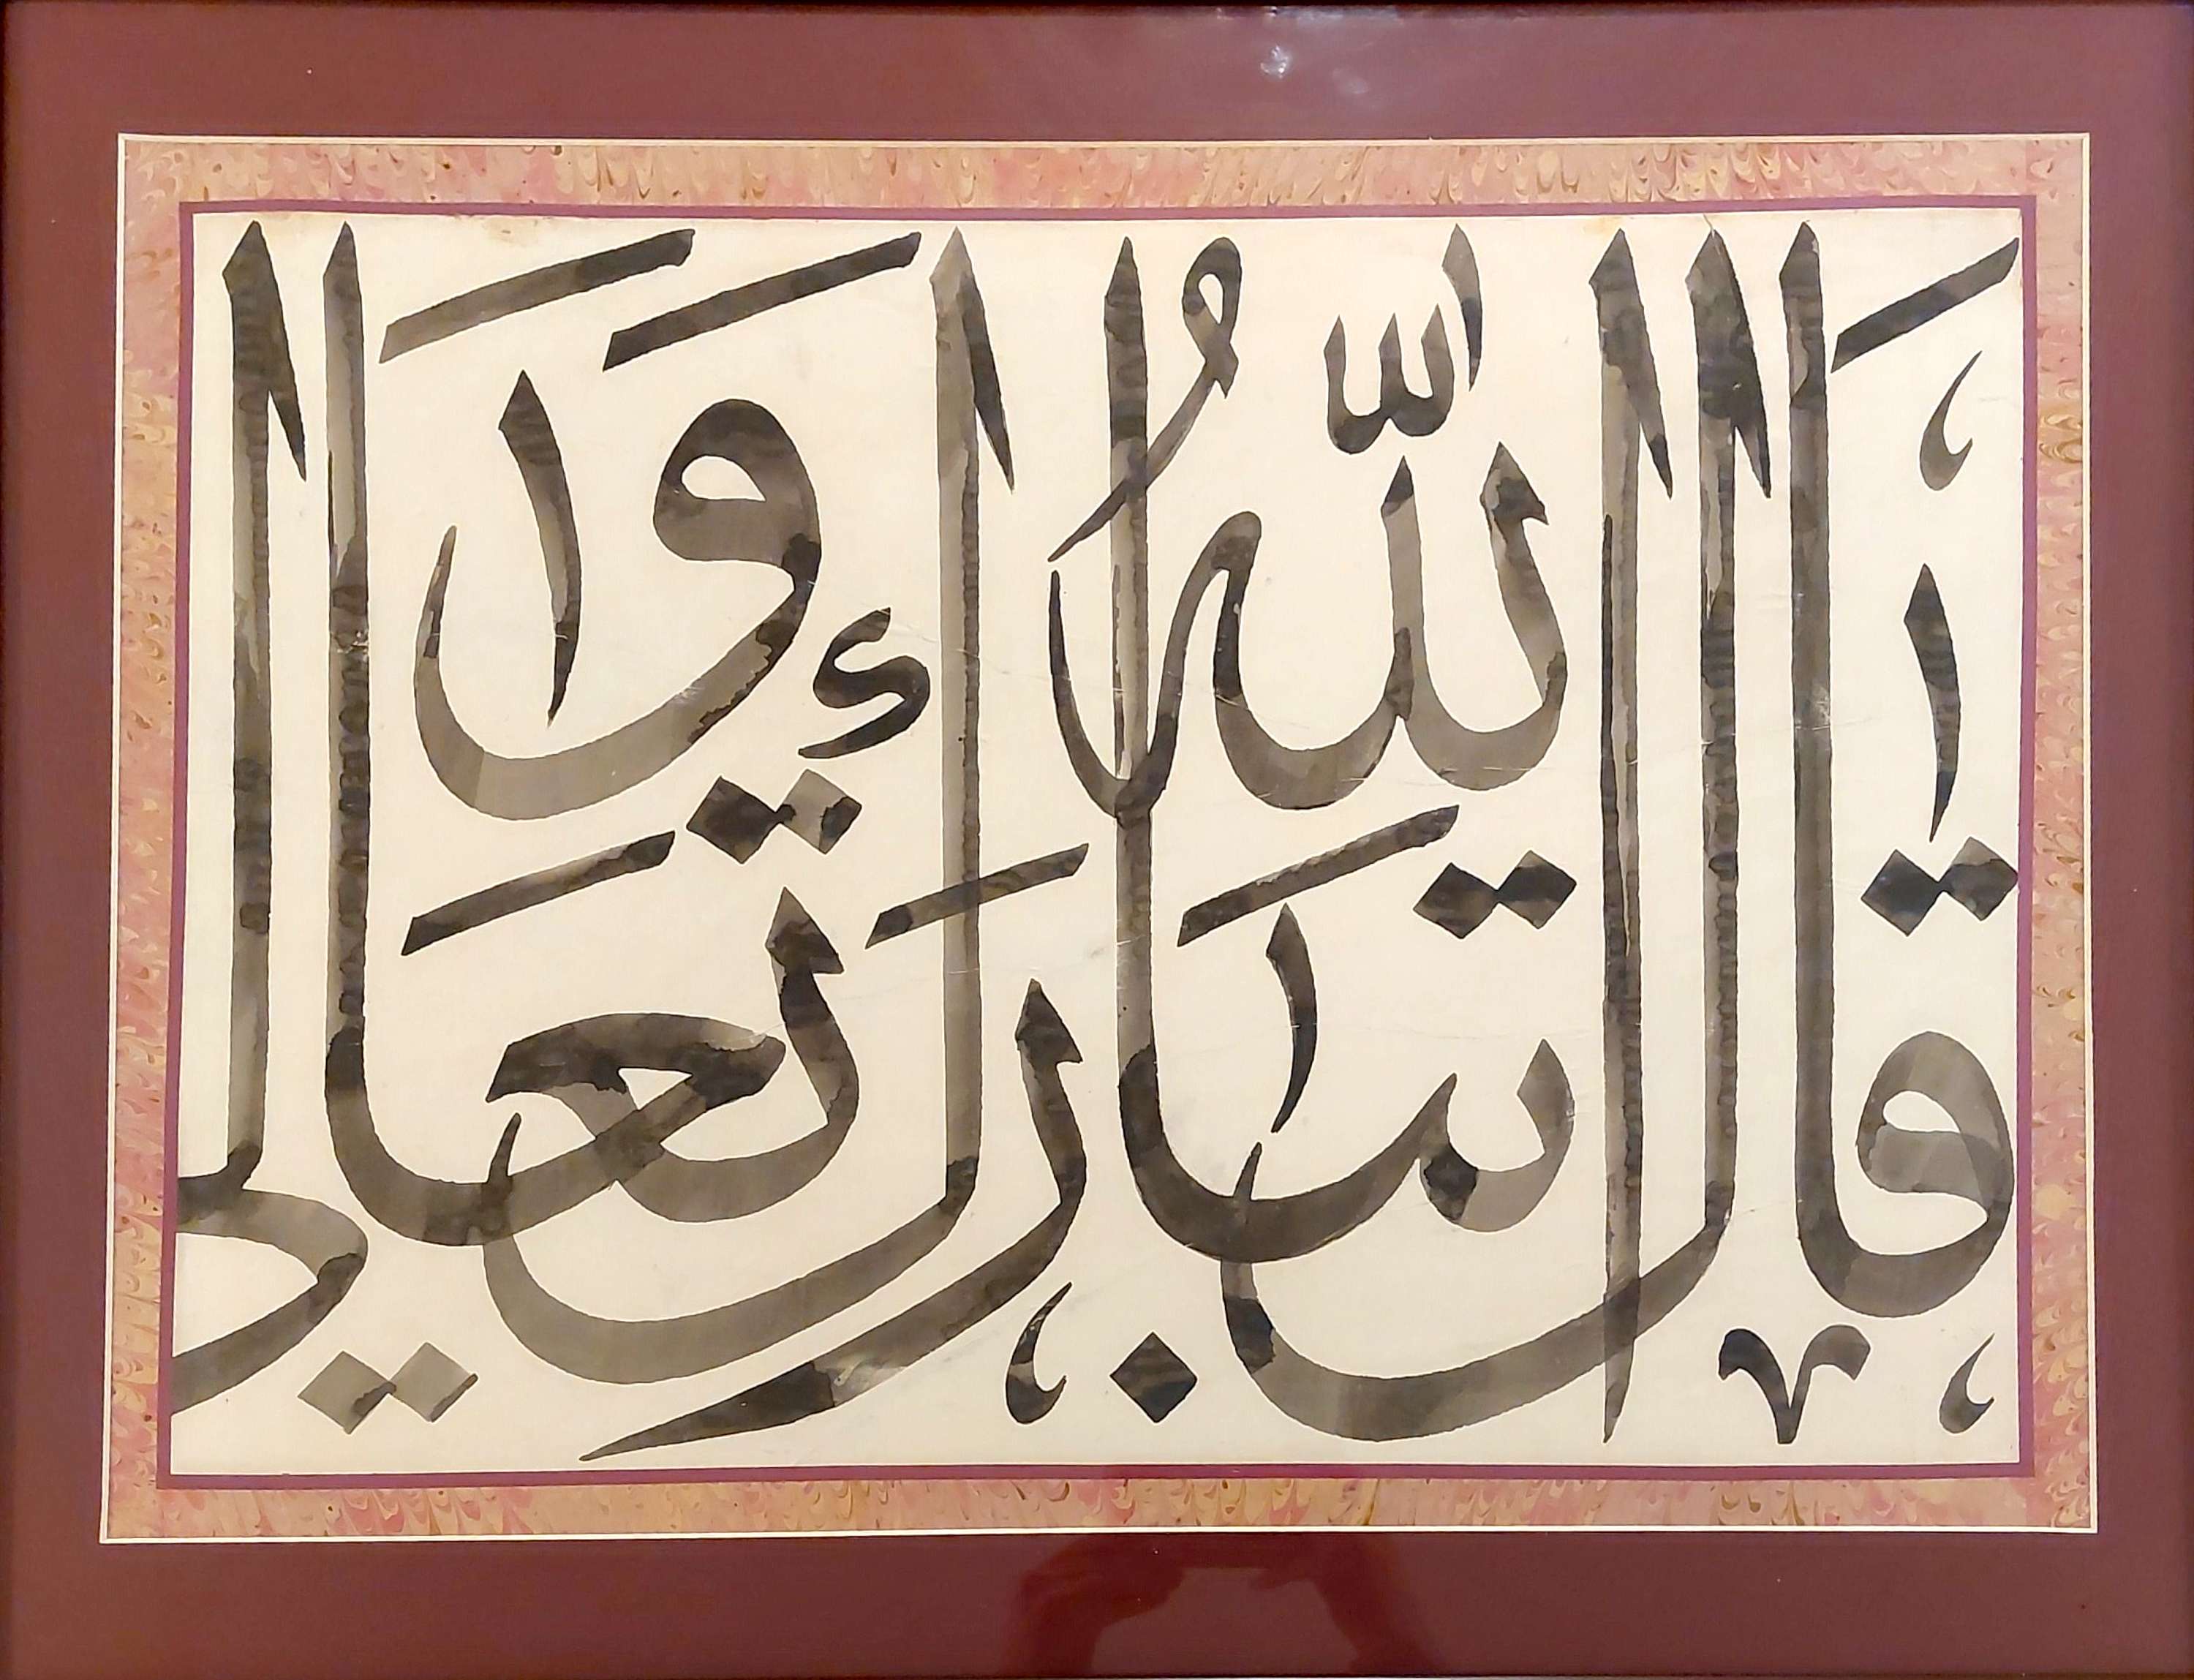 قَالَ اللّٰهُ تَبَارَكَ وَتَعَالٰى